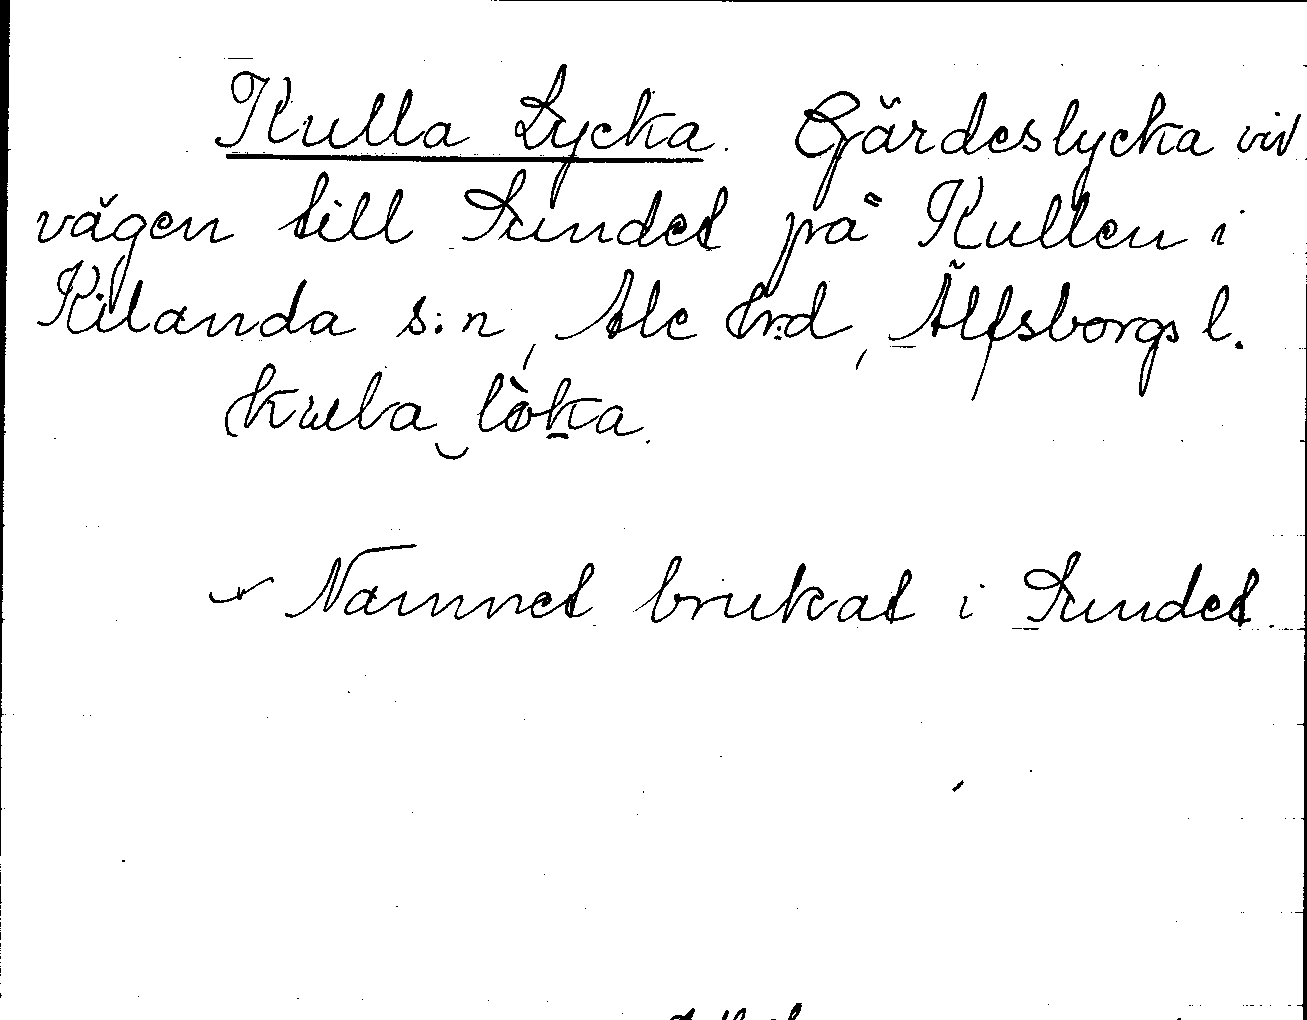 Kulla Lycka. Gärdeslycka vid
vägen till Sundet på Kullen i
Kilanda s:n, Ale hrd, Älfsborgs l.
Namnet brukat i Sundet.